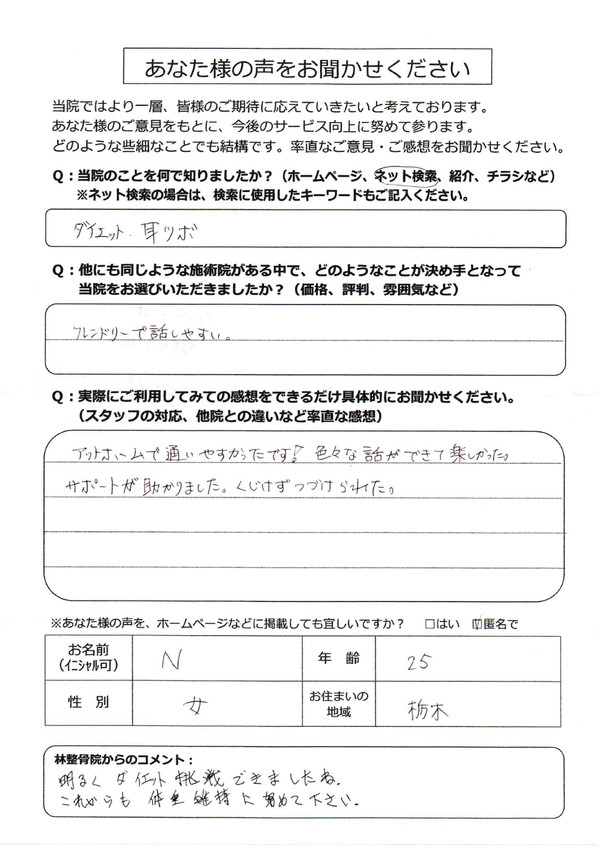 あなた様の声をお聞かせください
当院ではより一層、皆様のご期待に応えていきたいと考えております。
あなた様のご意見をもとに、今後のサービス向上に努めて参ります。
どのような些細なことでも結構です。率直なご意見・ご感想をお聞かせください。
Q：当院のことを何で知りましたか？（ホームページ、ネット検索、紹介、チラシなど）
※ネット検索の場合は、検索に使用したキーワードもご記入ください。
ダイエット．耳ツボ
Q：他にも同じような施術院がある中で、どのようなことが決め手となって
当院をお選びいただきましたか？（価格、評判、雰囲気など）
フレンドリーで話しやすい。
Q：実際にご利用してみての感想をできるだけ具体的にお聞かせください。
（スタッフの対応、他院との違いなど率直な感想）
アットホームで通いやすかったです！色々な話ができて楽しかった。
サポートが助かりました。くじけずつづけられた。
※あなた様の声を、ホームページなどに掲載しても宜しいですか？ □はい ☑匿名で
お名前 N 年 齢 25
（ｲﾆｼｬﾙ可）
性 別 女 お住まいの 栃木
地域
林整骨院からのコメント：
明るく ダイエット 挑戦できましたね。
これからも 体重維持に努めて下さい。